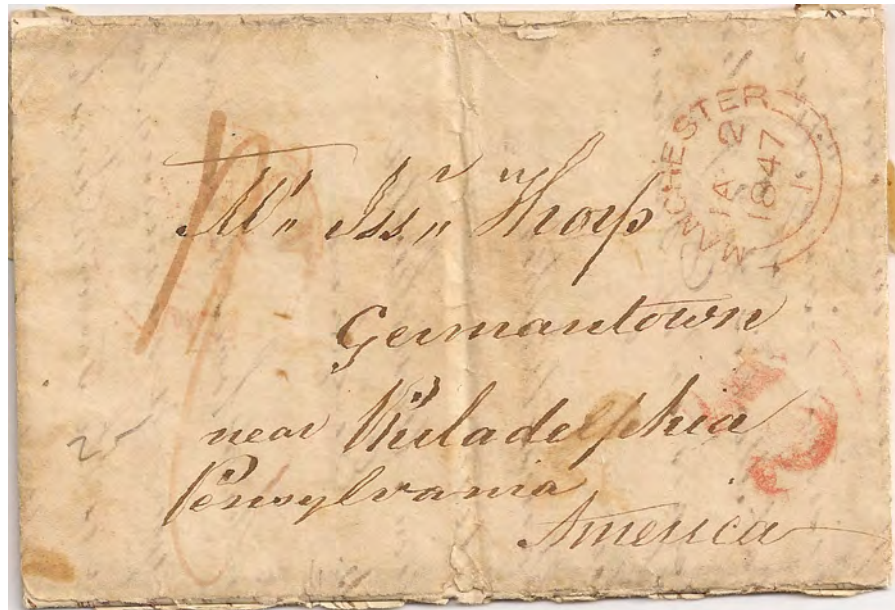 MANCHESTER
JA 2
1847
1
Mr Issr Thorp
Germantown
near Philadelphia
Pensylvania
America
25